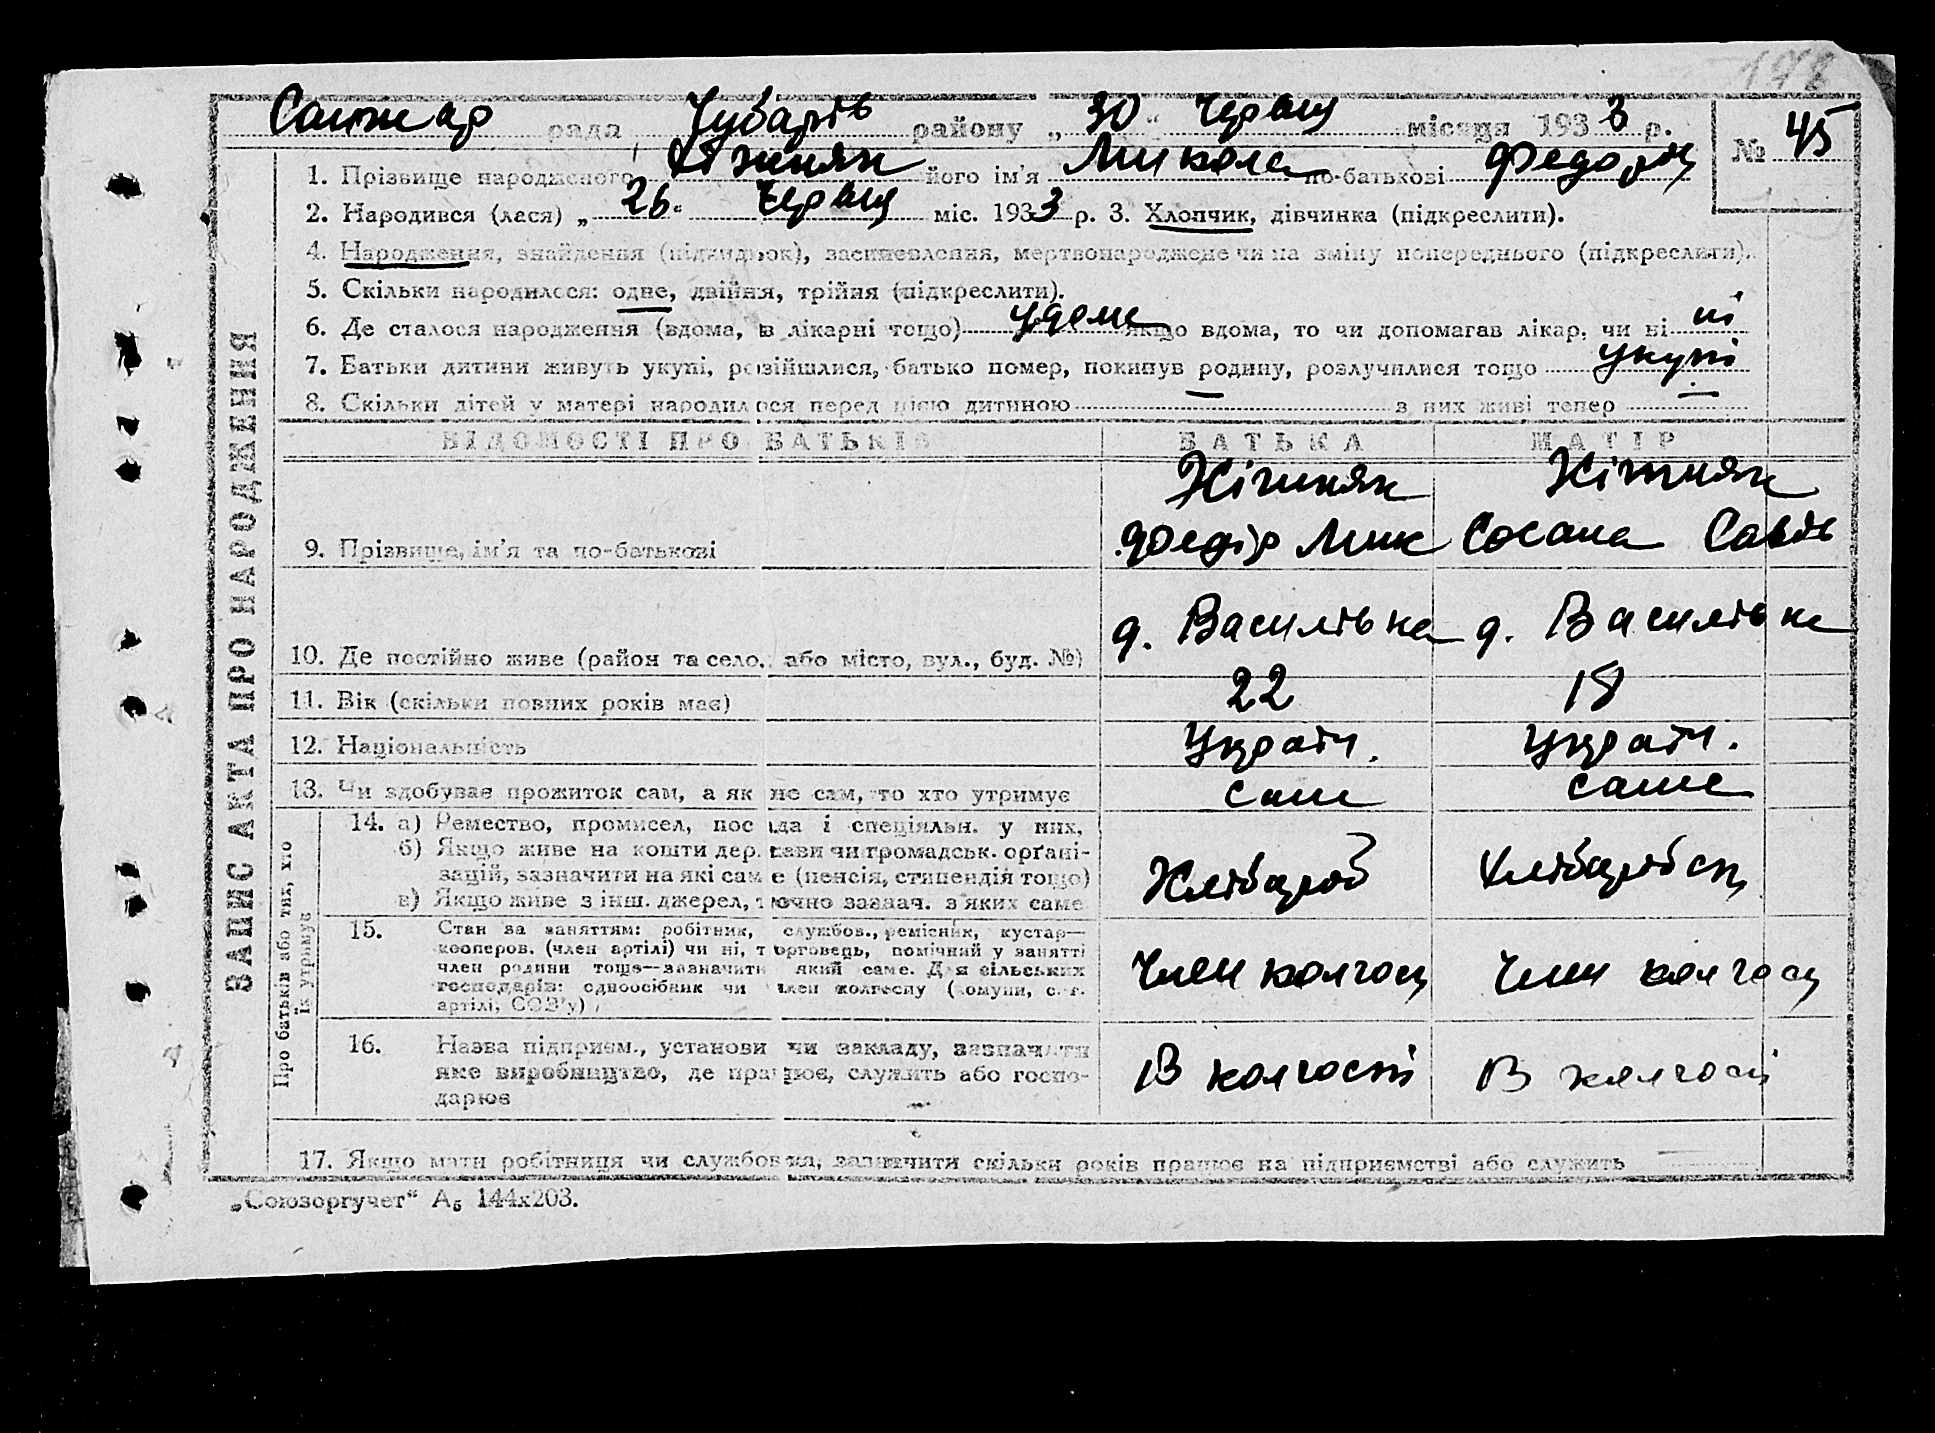 198
Санжар рада Чубарів району „ 30 " Червця місяця 1933 р.
№ 45
1. Прізвище народженого Хіжняк його ім'я Микола по-батькові Федорів
2. Народився (лася) „ 26 " Червця міс. 1933 р. 3. Хлопчик, дівчинка (підкреслити).
4. Народження, знайдення (підкидьок), засиновлення, мертвонароджене чи на зміну попереднього (підкреслити).
5. Скільки народилося: одне, двійня, трійня (підкреслити).
6. Де сталося народження (вдома, в лікарні тощо) удома якщо вдома, то чи допомагав лікар, чи ні ні
7. Батьки дитини живуть укупі, розійшлися, батько помер, покинув родину, розлучилися тощо укупі
8. Скільки дітей у матері народилося перед цією дитиною — з них живі тепер —
ВІДОМОСТІ ПРО БАТЬКІВ БАТЬКА МАТІР
Хіжняк Хіжняк
9. Прізвище, ім'я та по-батькові Федір Мик Сосана Савів
10. Де постійно живе (район та село, або місто, вул., буд. №) д. Василівка д. Василівка
11. Вік (скільки повних років має) 22 18
12. Національність Украін. Украін.
13. Чи здобуває прожиток сам, а як не сам, то хто утримує саме саме
14. а) Ремество, промисел, посада і спеціяльн. у них,
б) Якщо живе на кошти держави чи громадськ. орґані-
зацій, зазначити на які саме (пенсія, стипендія тощо)
в) Якщо живе з інш. джерел, точно зазнач. з яких саме
Хлібароб
15. Стан за заняттям: робітник, службов., ремісник, кустар—
кооперов. (член артілі) чи ні, торговець, помічний у занятті
член родини тощо—зазначити який саме. Для сільських
господарів: одноосібник чи член колгоспу (комуни, с.-г.
артілі, СОЗ'у)
Член колгосп Член колгосп
16. Назва підприєм., установи чи закладу, зазначити
яке виробництво, де працює, служить або госпо-
дарює
В колгоспі В колгосп
17. Якщо мати робітниця чи службовка, зазначити скільки років працює на підприємстві або служить
ЗАПИС АКТА ПРО НАРОДЖЕННЯ
Про батьків або тих, хто
їх утримує
„Союзоргучет" А₅ 144х203.